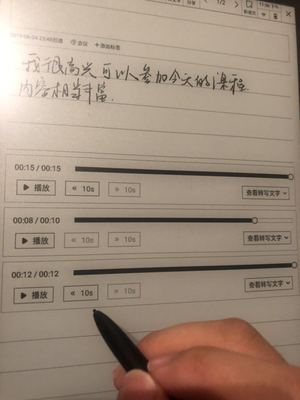 1/2
2019-06-24 23:48创建 会议 +添加标签
我很高兴可以参加今天的课程
内容相当丰富.
00:15 / 00:15
▶ 播放 « 10s » 10s 查看转写文字
00:08 / 00:10
▶ 播放 « 10s » 10s 查看转写文字
00:12 / 00:12
▶ 播放 « 10s » 10s 查看转写文字